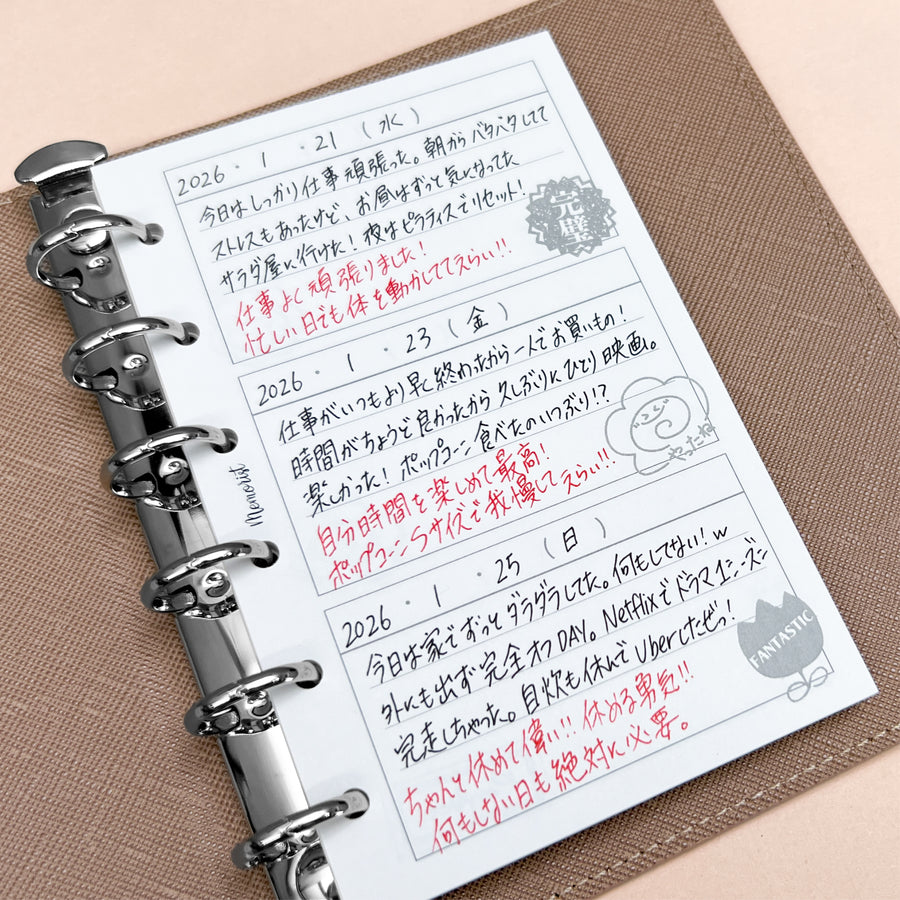 2026・1・21(水)
今日はしっかり仕事頑張った。朝からバタバタしてて
ストレスもあったけど、お昼はずっと気になってた
サラダ屋に行けた！夜はピラティスでリセット！
仕事よく頑張りました！
忙しい日でも体を動かしててえらい!!
完璧
2026・1・23(金)
仕事がいつもより早く終わったから一人でお買いもの！
時間がちょうど良かったから久しぶりにひとり映画。
楽しかった！ポップコーン食べたのいつぶり!?
自分時間を楽しめて最高！
ポップコーンSサイズで我慢してえらい!!
やったね
Memorist
2026・1・25(日)
今日は家でずっとダラダラしてた。何もしてない！w
外にも出ず完全オフDAY。Netflixでドラマ1シーズン
完走しちゃった。自炊も休んでUberしたぜっ！
ちゃんと休めて偉い!!休める勇気!!
何もしない日も絶対に必要。
FANTASTIC